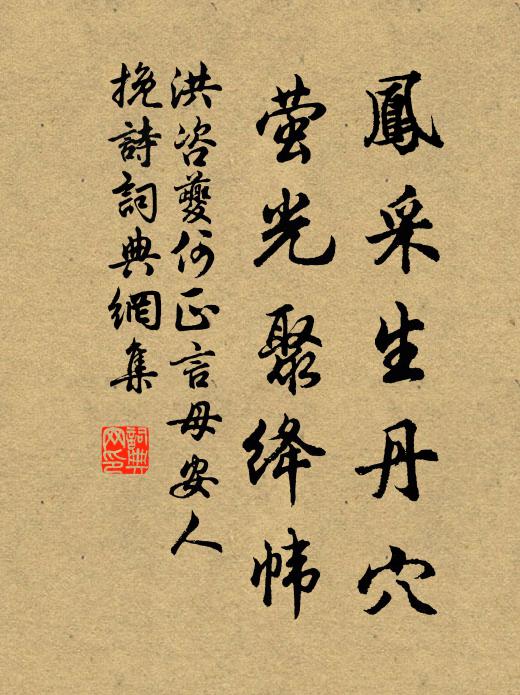 鳳采生丹穴
萤光聚绛帏
洪咨夔何正言母安人
挽詩詞典網集
詞典网印